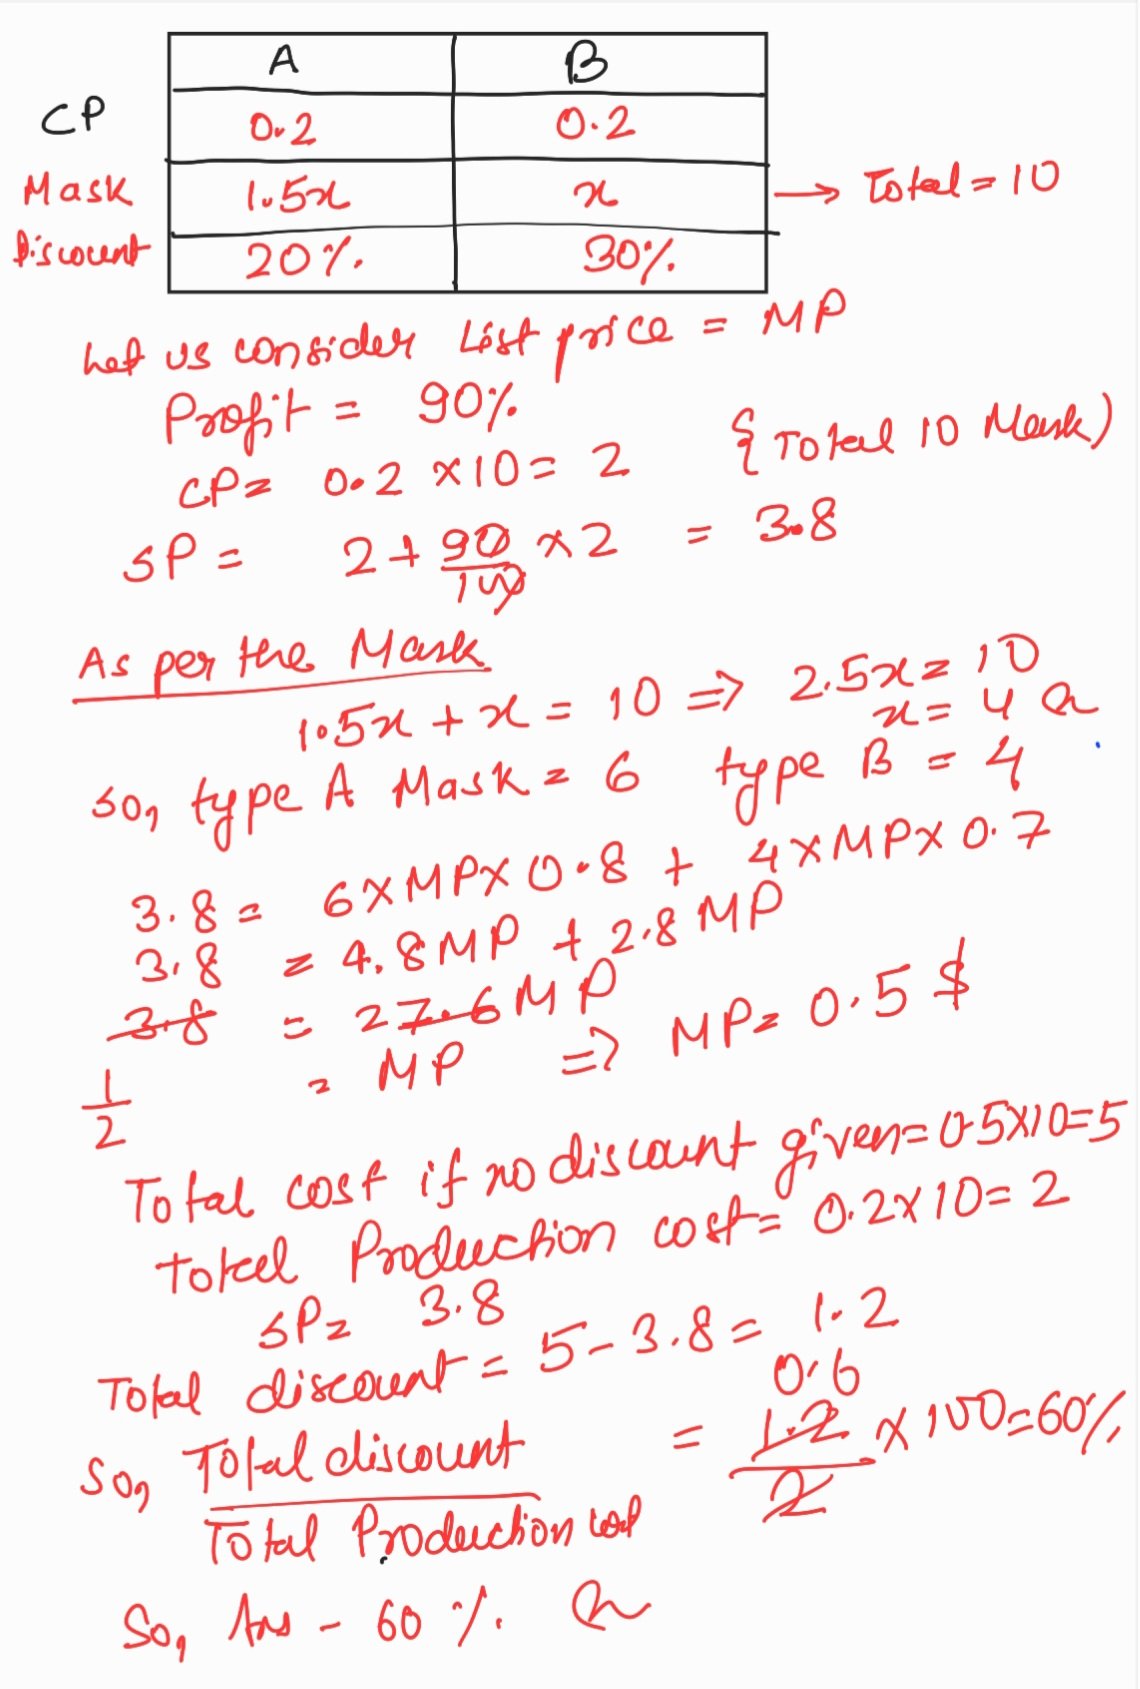 A B
CP 0.2 0.2
Mask 1.5x x → Total = 10
Discount 20% 30%
Let us consider List price = MP
Profit = 90%
CP = 0.2 × 10 = 2 {Total 10 Mask)
SP = 2 + 90/100 × 2 = 3.8
As per the Mask
1.5x + x = 10 => 2.5x = 10
x = 4
So, type A Mask = 6 type B = 4
3.8 = 6 × MP × 0.8 + 4 × MP × 0.7
3.8 = 4.8 MP + 2.8 MP
3.8 = 27.6 MP
1/2 = MP => MP = 0.5 $
Total cost if no discount given = 0.5×10=5
Total Production cost = 0.2×10=2
SP = 3.8
Total discount = 5 - 3.8 = 1.2
0.6
So, Total discount / Total Production cost = 1.2/2 × 100 = 60%
So, Ans - 60 %.